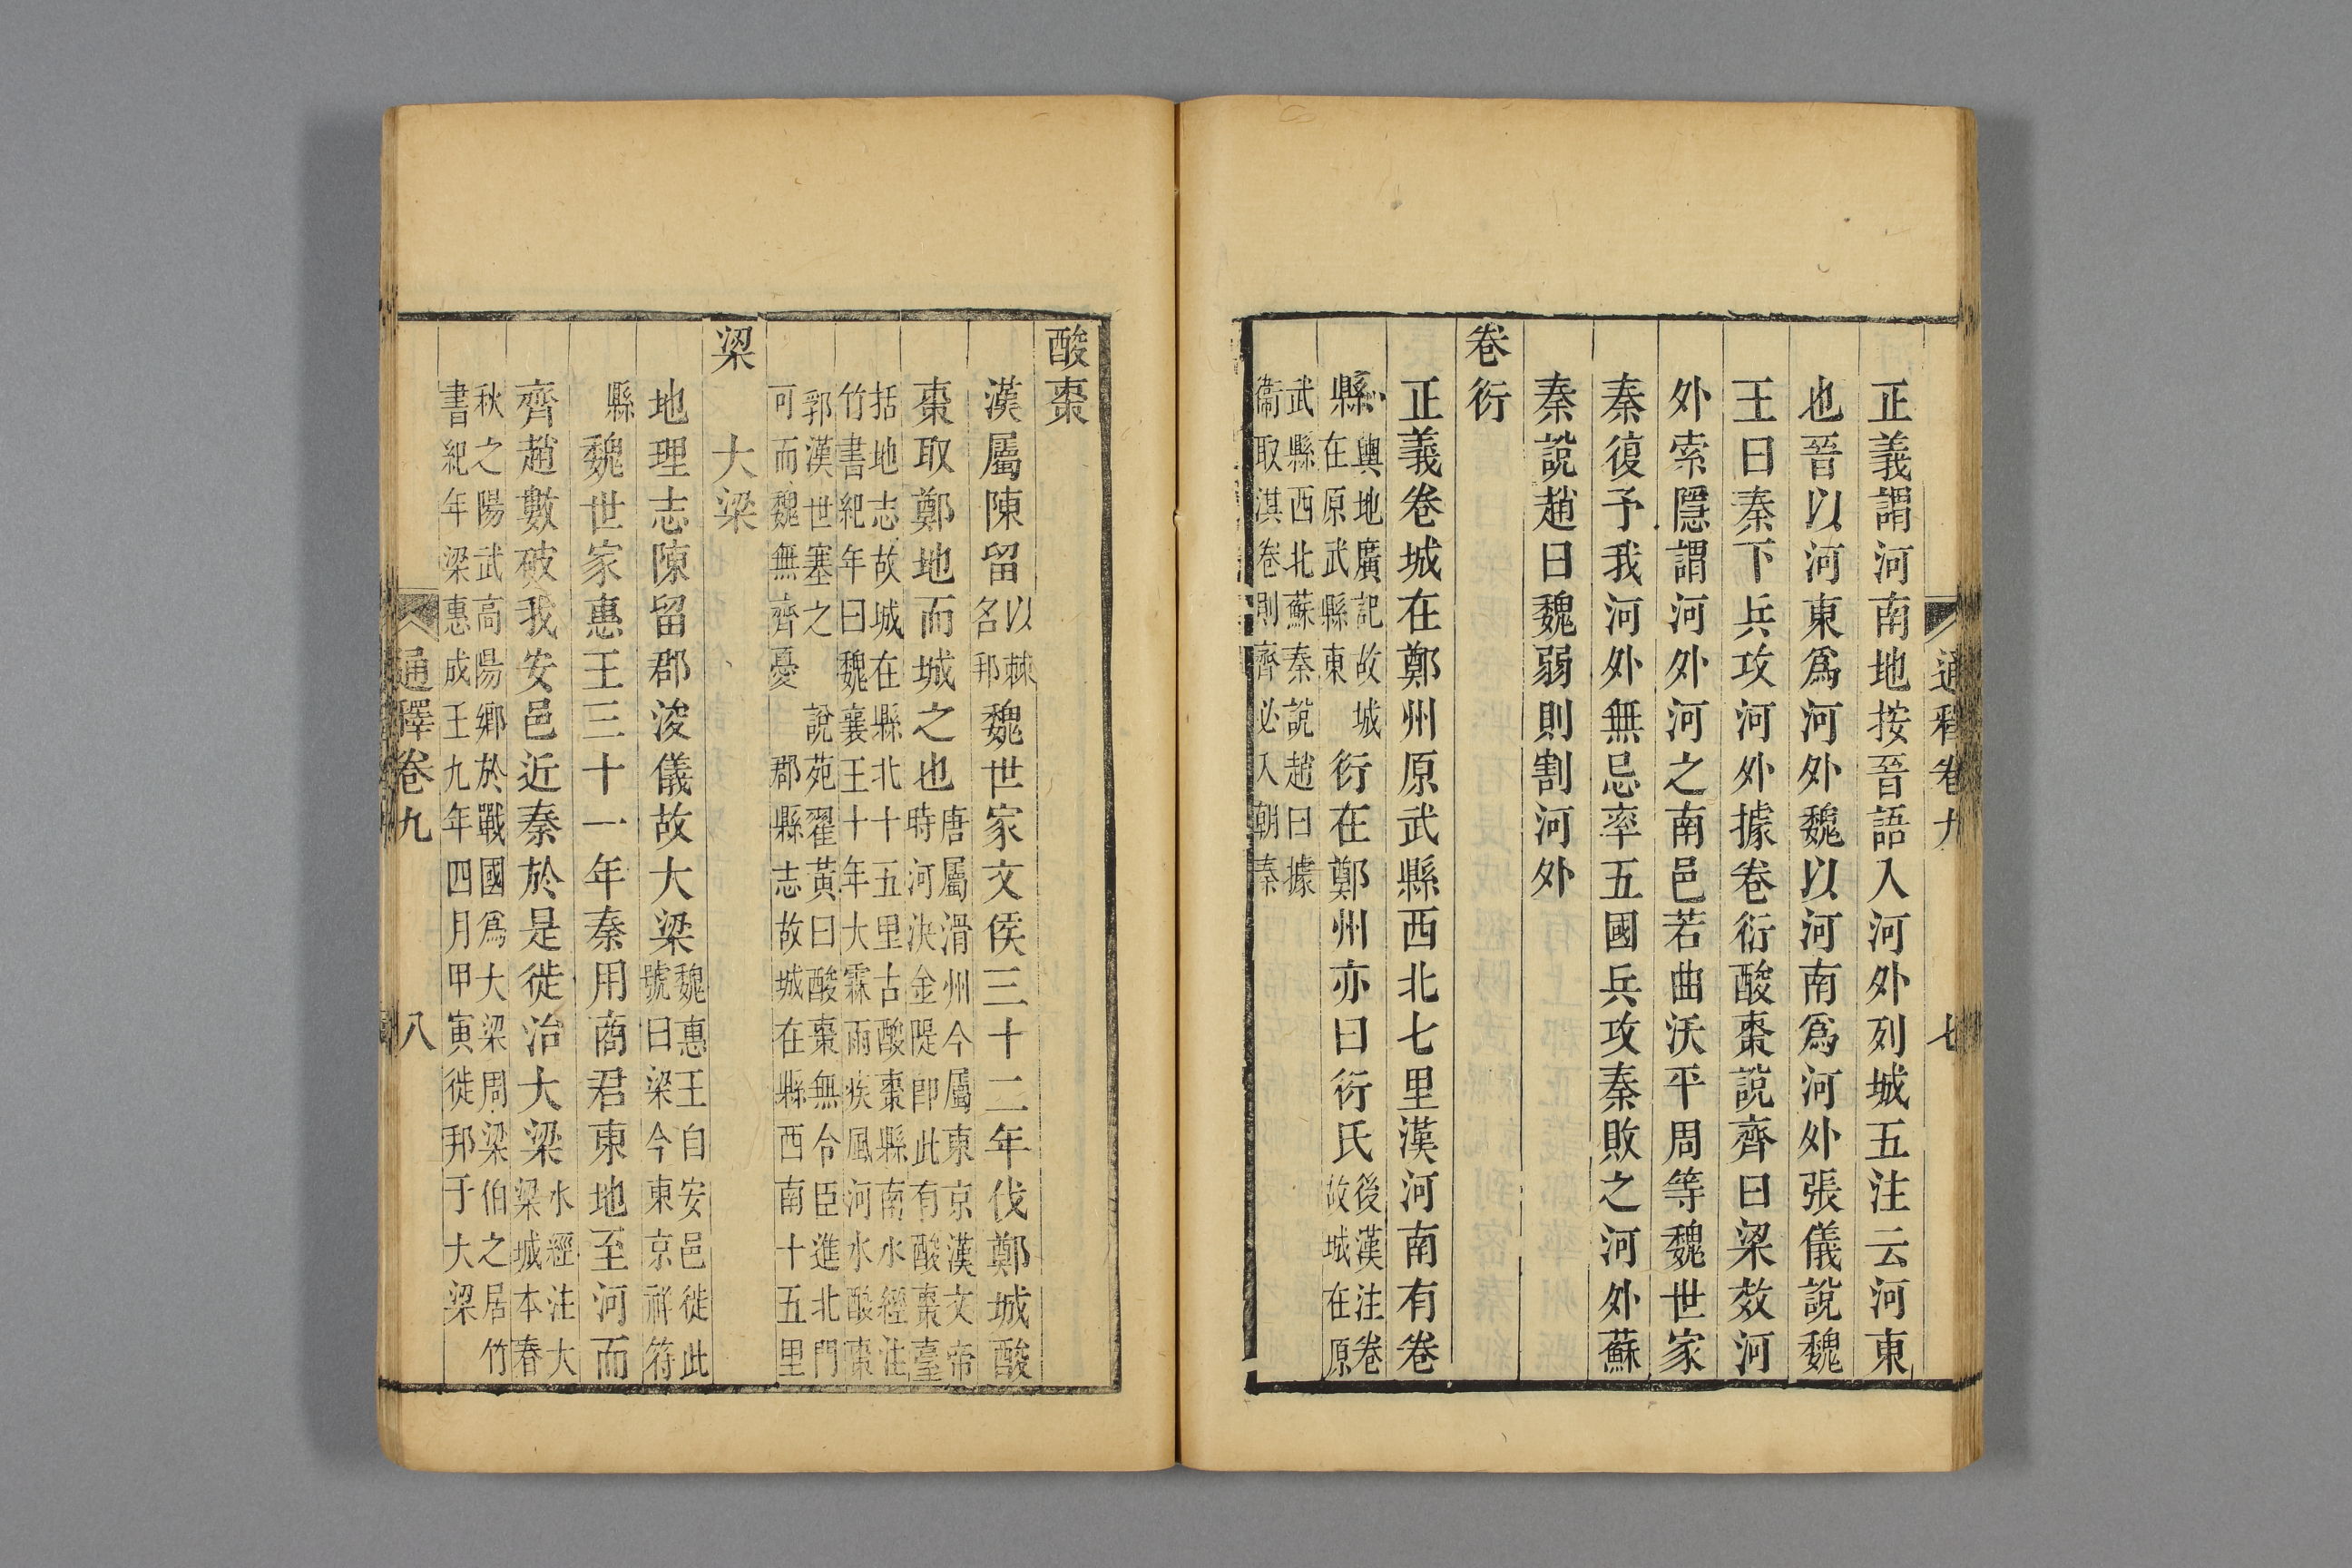 通釋卷九
七
正義謂河南地按晉語入河外列城五注云河東
也晉以河東爲河外魏以河南爲河外張儀說魏
王曰秦下兵攻河外據卷衍酸棗說齊曰梁效河
外索隱謂河外河之南邑若曲沃平周等魏世家
秦復予我河外無忌率五國兵攻秦敗之河外蘇
秦說趙曰魏弱則割河外
卷衍
正義卷城在鄭州原武縣西北七里漢河南有卷
縣輿地廣記故城
在原武縣東
衍在鄭州亦曰衍氏後漢注卷
故城在原
武縣西北蘇秦說趙曰據
衞取淇卷則齊必入朝秦
酸棗
漢屬陳留以棘
名邦
魏世家文侯三十二年伐鄭城酸
棗取鄭地而城之也唐屬滑州今屬東京漢文帝
時河決金隄卽此有酸棗臺
括地志故城在縣北十五里古酸棗縣南水經注
竹書紀年曰魏襄王十年大霖雨疾風河水酸棗
郛漢世塞之 說苑翟黃曰酸棗無令臣進北門
可而魏無齊憂 郡縣志故城在縣西南十五里
梁 大梁
地理志陳留郡浚儀故大梁魏惠王自安邑徙此
號曰梁今東京祥符
縣魏世家惠王三十一年秦用商君東地至河而
齊趙數破我安邑近秦於是徙治大梁水經注大
梁城本春
秋之陽武高陽鄉於戰國爲大梁周梁伯之居竹
書紀年梁惠成王九年四月甲寅徙邦于大梁
通釋卷九
八